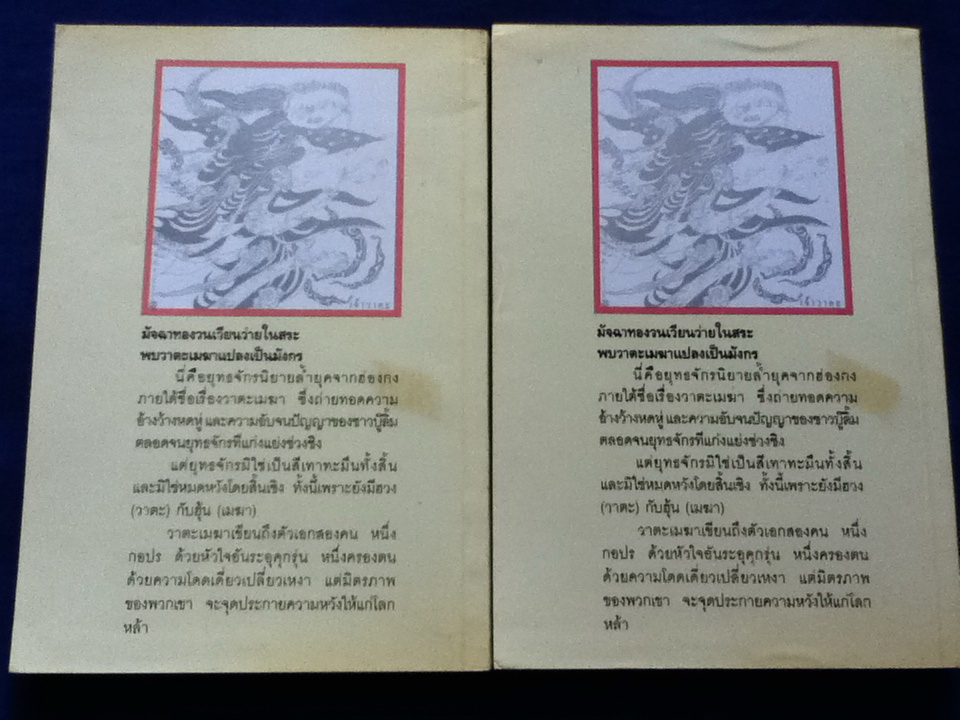 เจ้าวาตะ
มัจฉาทองวนเวียนว่ายในสระ
พบวาตะเมฆาแปลงเป็นมังกร
นี่คือยุทธจักรนิยายล้ำยุคจากฮ่องกง
ภายใต้ชื่อเรื่องวาตะเมฆา ซึ่งถ่ายทอดความ
อ้างว้างหดหู่ และความอับจนปัญญาของชาวบู๊ลิ้ม
ตลอดจนยุทธจักรที่แก่งแย่งช่วงชิง
แต่ยุทธจักรมิใช่เป็นสีเทาทะมึนทั้งสิ้น
และมิใช่หมดหวังโดยสิ้นเชิง ทั้งนี้เพราะยังมีฮวง
(วาตะ) กับฮุ้น (เมฆา)
วาตะเมฆาเขียนถึงตัวเอกสองคน หนึ่ง
กอปร ด้วยหัวใจอันระอุคุกรุ่น หนึ่งครองตน
ด้วยความโดดเดี่ยวเปลี่ยวเหงา แต่มิตรภาพ
ของพวกเขา จะจุดประกายความหวังให้แก่โลก
หล้า
เจ้าวาตะ
มัจฉาทองวนเวียนว่ายในสระ
พบวาตะเมฆาแปลงเป็นมังกร
นี่คือยุทธจักรนิยายล้ำยุคจากฮ่องกง
ภายใต้ชื่อเรื่องวาตะเมฆา ซึ่งถ่ายทอดความ
อ้างว้างหดหู่ และความอับจนปัญญาของชาวบู๊ลิ้ม
ตลอดจนยุทธจักรที่แก่งแย่งช่วงชิง
แต่ยุทธจักรมิใช่เป็นสีเทาทะมึนทั้งสิ้น
และมิใช่หมดหวังโดยสิ้นเชิง ทั้งนี้เพราะยังมีฮวง
(วาตะ) กับฮุ้น (เมฆา)
วาตะเมฆาเขียนถึงตัวเอกสองคน หนึ่ง
กอปร ด้วยหัวใจอันระอุคุกรุ่น หนึ่งครองตน
ด้วยความโดดเดี่ยวเปลี่ยวเหงา แต่มิตรภาพ
ของพวกเขา จะจุดประกายความหวังให้แก่โลก
หล้า